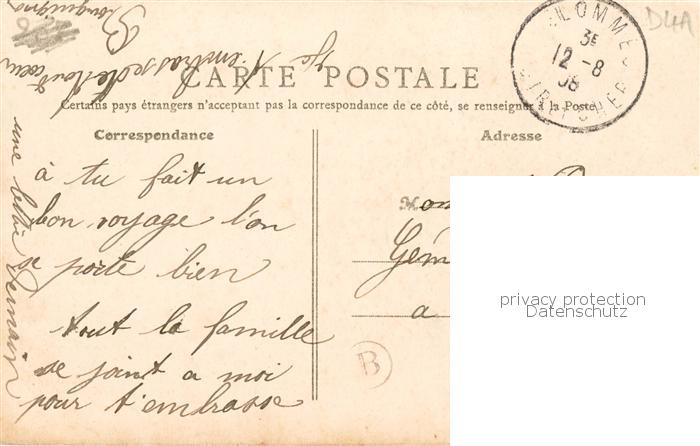 CARTE POSTALE
Certains pays étrangers n'acceptant pas la correspondance de ce côté, se renseigner à la Poste
Correspondance
Adresse
à tu fait un
bon voyage l'on
se porte bien
tout la famille
se joint a moi
pour t'embrasse
Je t'embrasse de tout cœur
une
LOMME
3E
12 -8
08
D4A
Gém
a
B
privacy protection
Datenschutz